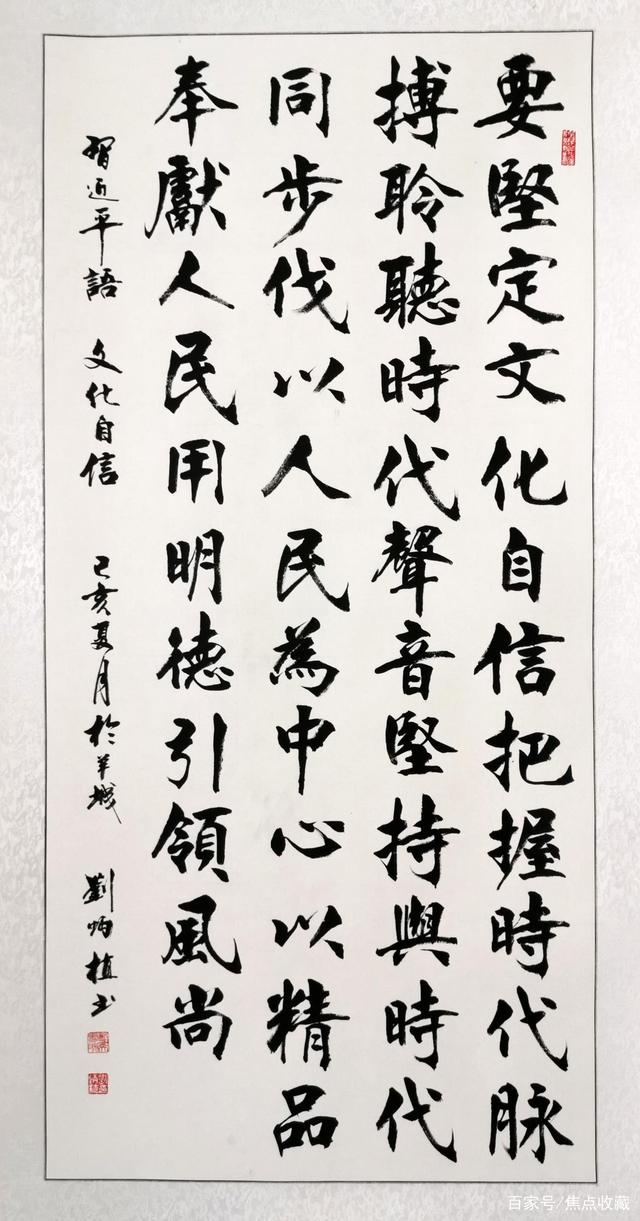 要堅定文化自信把握時代脉
搏聆聽時代聲音堅持與時代
同步伐以人民為中心以精品
奉獻人民用明德引領風尚
習近平語 文化自信 己亥夏月於羊城 劉炳植书
百家号/焦点收藏